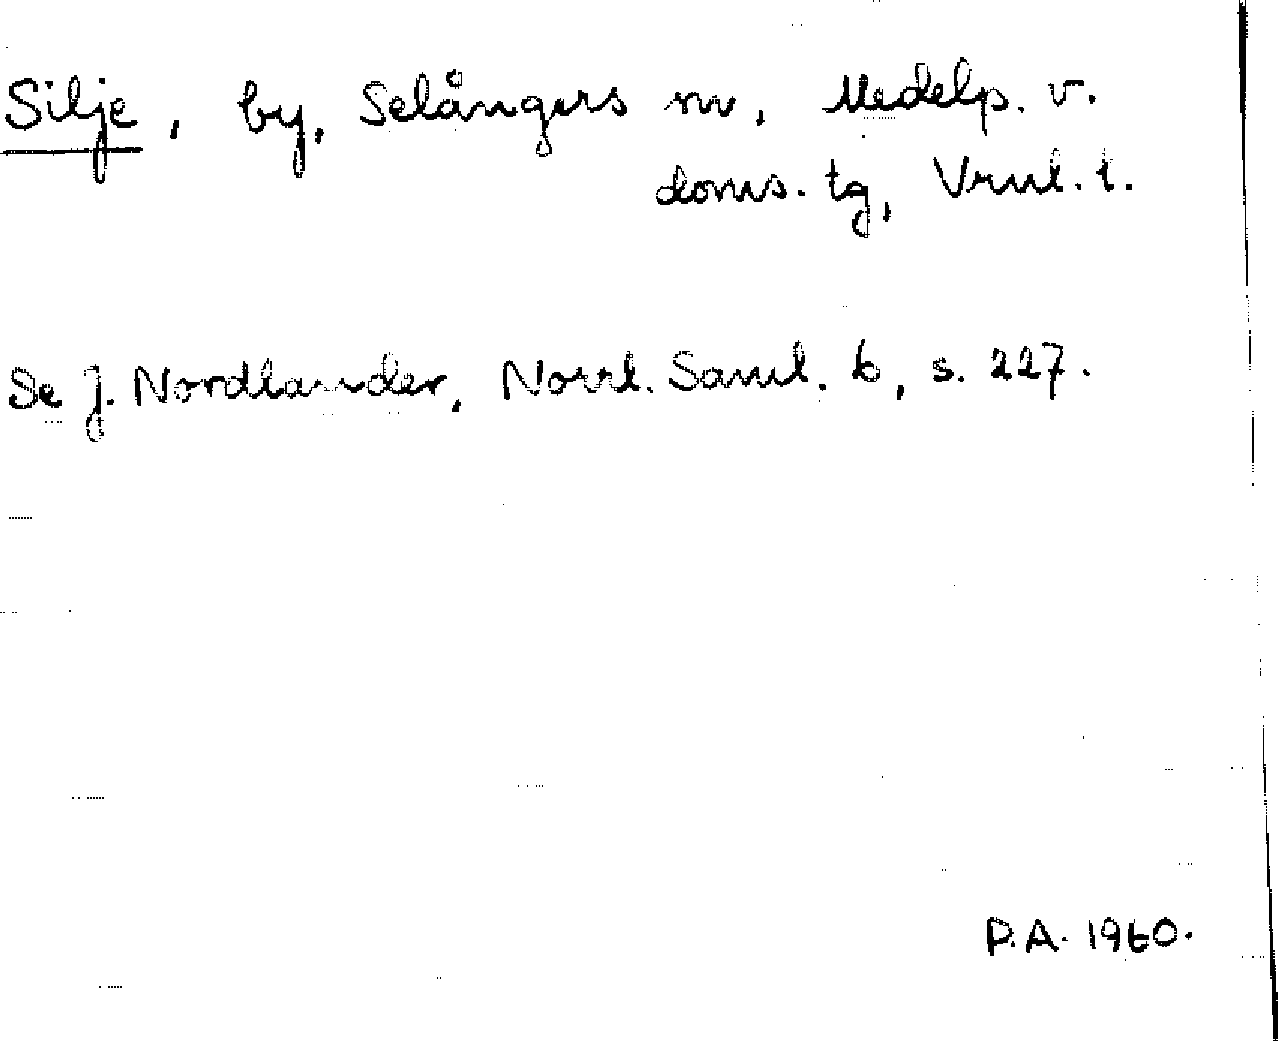 Silje, by, Selångers sn, Medelp. v.
doms. tg, Vrnl. l.
Se J. Nordlander, Norrl. Saml. 6, s. 227.
P.A. 1960.